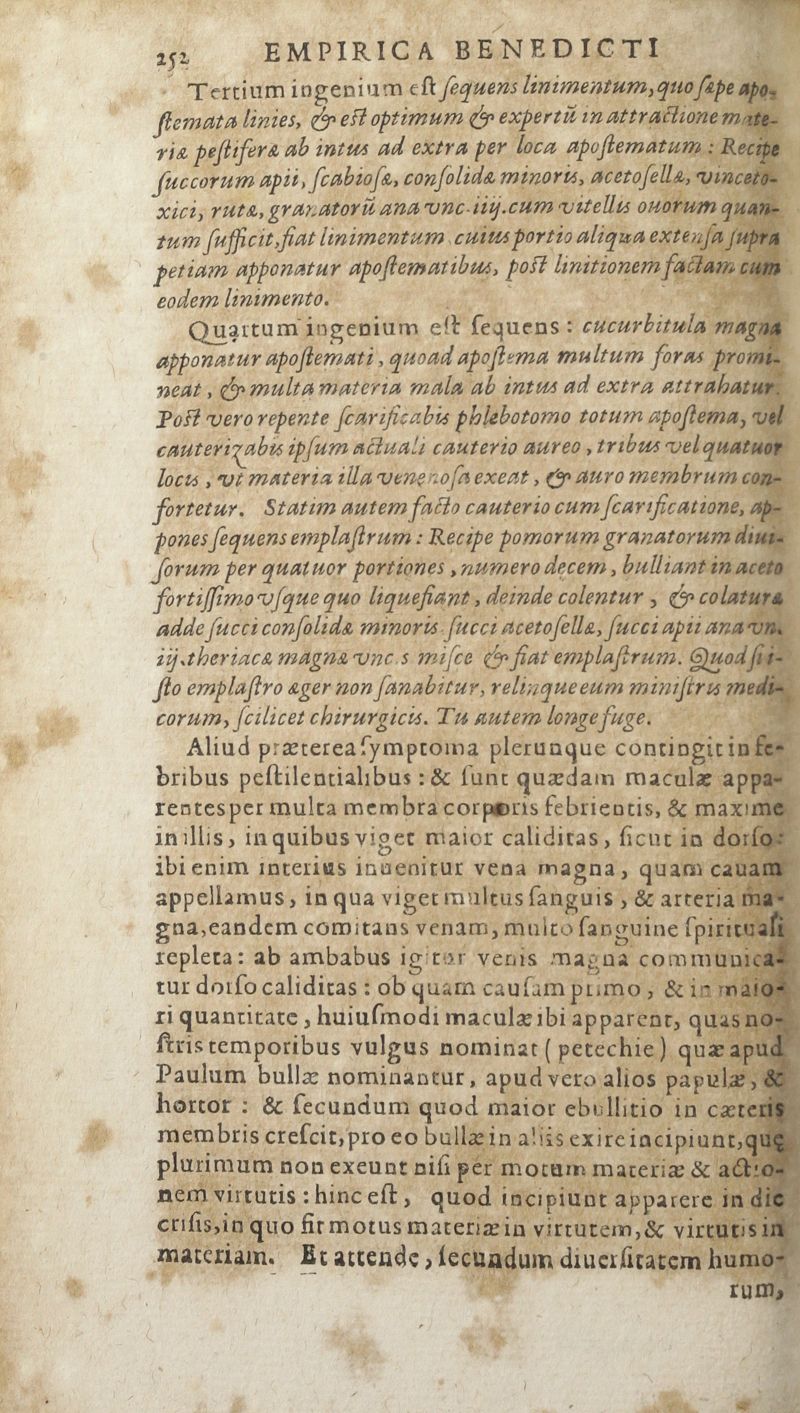 252 EMPIRICA BENEDICTI
Tertium ingenium eſt ſequens linimentum, quo ſæpe apo-
ſtemata linies, & eſt optimum & expertũ in attractione mate-
riæ peſtiferæ ab intus ad extra per loca apoſtematum : Recipe
ſuccorum apii, ſcabioſæ, conſolidæ minoris, acetoſellæ, vinceto-
xici, rutæ, granatorũ ana vnc. iiij. cum vitellis ouorum quan-
tum ſufficit, fiat linimentum cuius portio aliqua extenſa ſupra
petiam apponatur apoſtematibus, poſt linitionem factam cum
eodem linimento.
Quartum ingenium eſt ſequens : cucurbitula magna
apponatur apoſtemati, quoad apoſtema multum foras promi-
neat, & multa materia mala ab intus ad extra attrahatur.
Poſt vero repente ſcarificabis phlebotomo totum apoſtema, vel
cauterizabis ipſum actuali cauterio aureo, tribus vel quatuor
locis, vt materia illa venenoſa exeat, & auro membrum con-
fortetur. Statim autem facto cauterio cum ſcarificatione, ap-
pones ſequens emplaſtrum : Recipe pomorum granatorum diui-
ſorum per quatuor portiones, numero decem, bulliant in aceto
fortiſſimo vſque quo liquefiant, deinde colentur, & colaturæ
adde ſucci conſolidæ minoris ſucci acetoſellæ, ſucci apii ana vn.
iij. theriacæ magnæ vnc. s miſce & fiat emplaſtrum. Quod ſi i-
ſto emplaſtro æger non ſanabitur, relinque eum miniſtris medi-
corum, ſcilicet chirurgicis. Tu autem longe fuge.
Aliud præterea ſymptoma plerunque contingit in fe-
bribus peſtilentialibus : & ſunt quædam maculæ appa-
rentes per multa membra corporis febrientis, & maxime
in illis, in quibus viget maior caliditas, ſicut in dorſo:
ibi enim interius inuenitur vena magna, quam cauam
appellamus, in qua viget multus ſanguis, & arteria ma-
gna, eandem comitans venam, multo ſanguine ſpirituali
repleta: ab ambabus igitur venis magna communica-
tur dorſo caliditas : ob quam cauſam primo, & in maio-
ri quantitate, huiuſmodi maculæ ibi apparent, quas no-
ſtris temporibus vulgus nominat ( petechie ) quæ apud
Paulum bullæ nominantur, apud vero alios papulæ, &
hortor : & ſecundum quod maior ebullitio in cæteris
membris creſcit, pro eo bullæ in aliis exire incipiunt, quę
plurimum non exeunt niſi per motum materiæ & actio-
nem virtutis : hinc eſt, quod incipiunt apparere in die
criſis, in quo fit motus materiæ in virtutem, & virtutis in
materiam. Et attende, ſecundum diuerſitatem humo-
rum,